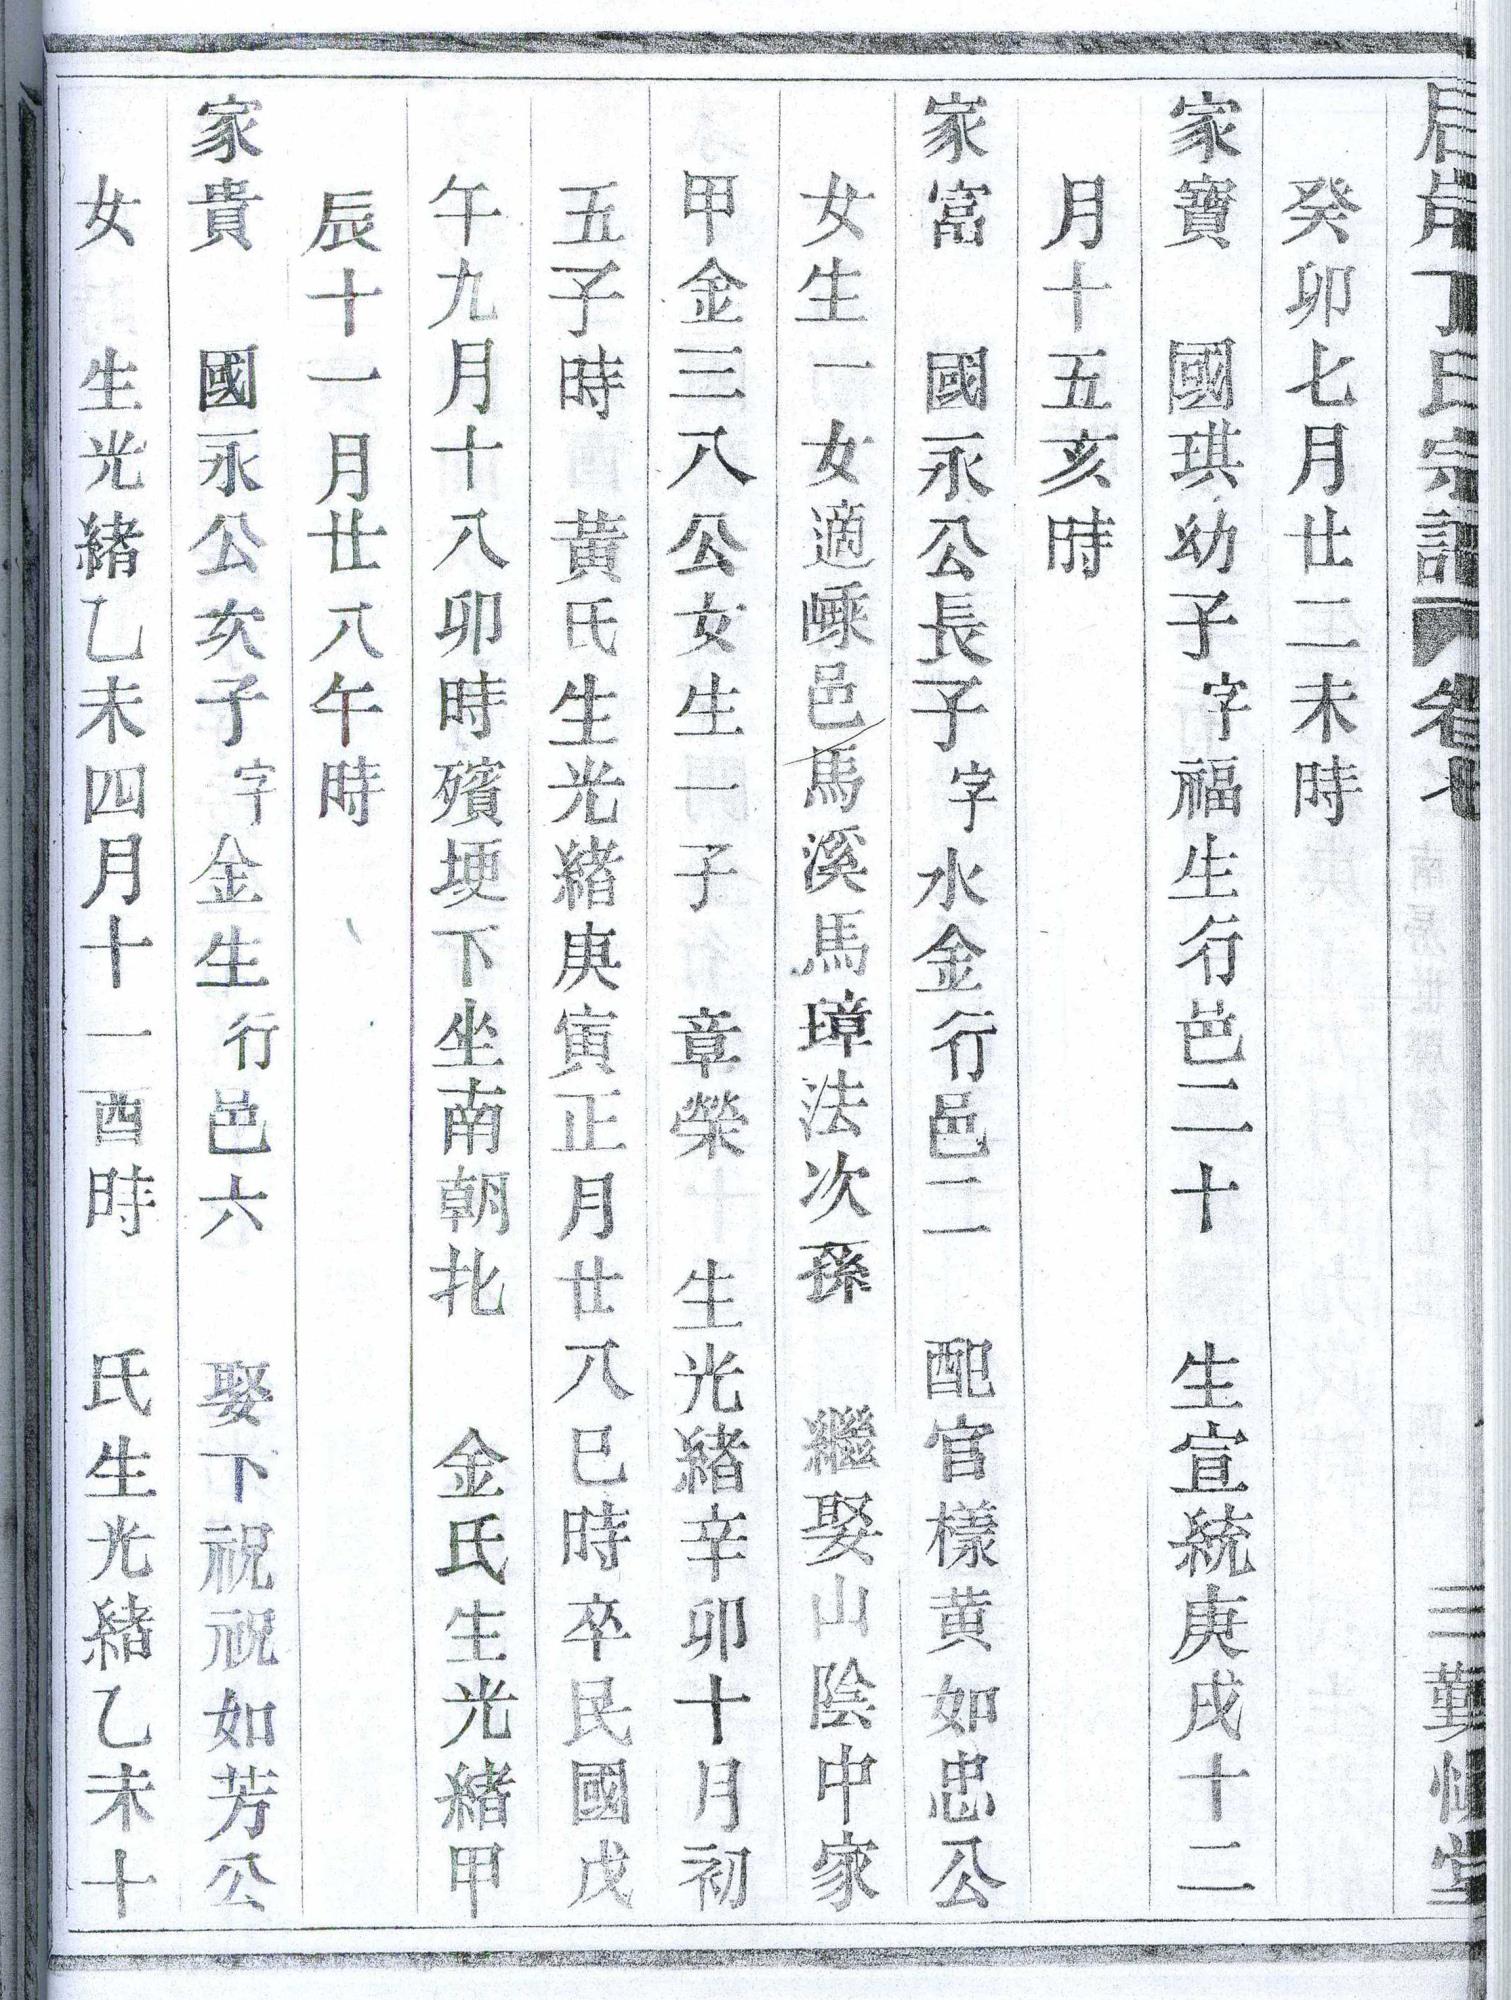 丁氏宗譜 卷七 三 堂
癸卯七月廿二未時
家寶 國琪幼子字福生行邑二十 生宣統庚戌十二
月十五亥時
家富 國永公長子字水金行邑二 配官樣黄如忠公
女生一女適嵊邑馬溪馬璋法次孫 繼娶山陰中家
甲金三八公女生一子 章榮 生光緒辛卯十月初
五子時 黄氏生光緒庚寅正月廿八巳時卒民國戊
午九月十八卯時殯埂下坐南朝北 金氏生光緒甲
辰十一月廿八午時
家貴 國永公次子字金生行邑六 娶下祝祝如芳公
女 生光緒乙未四月十一酉時 氏生光緒乙未十